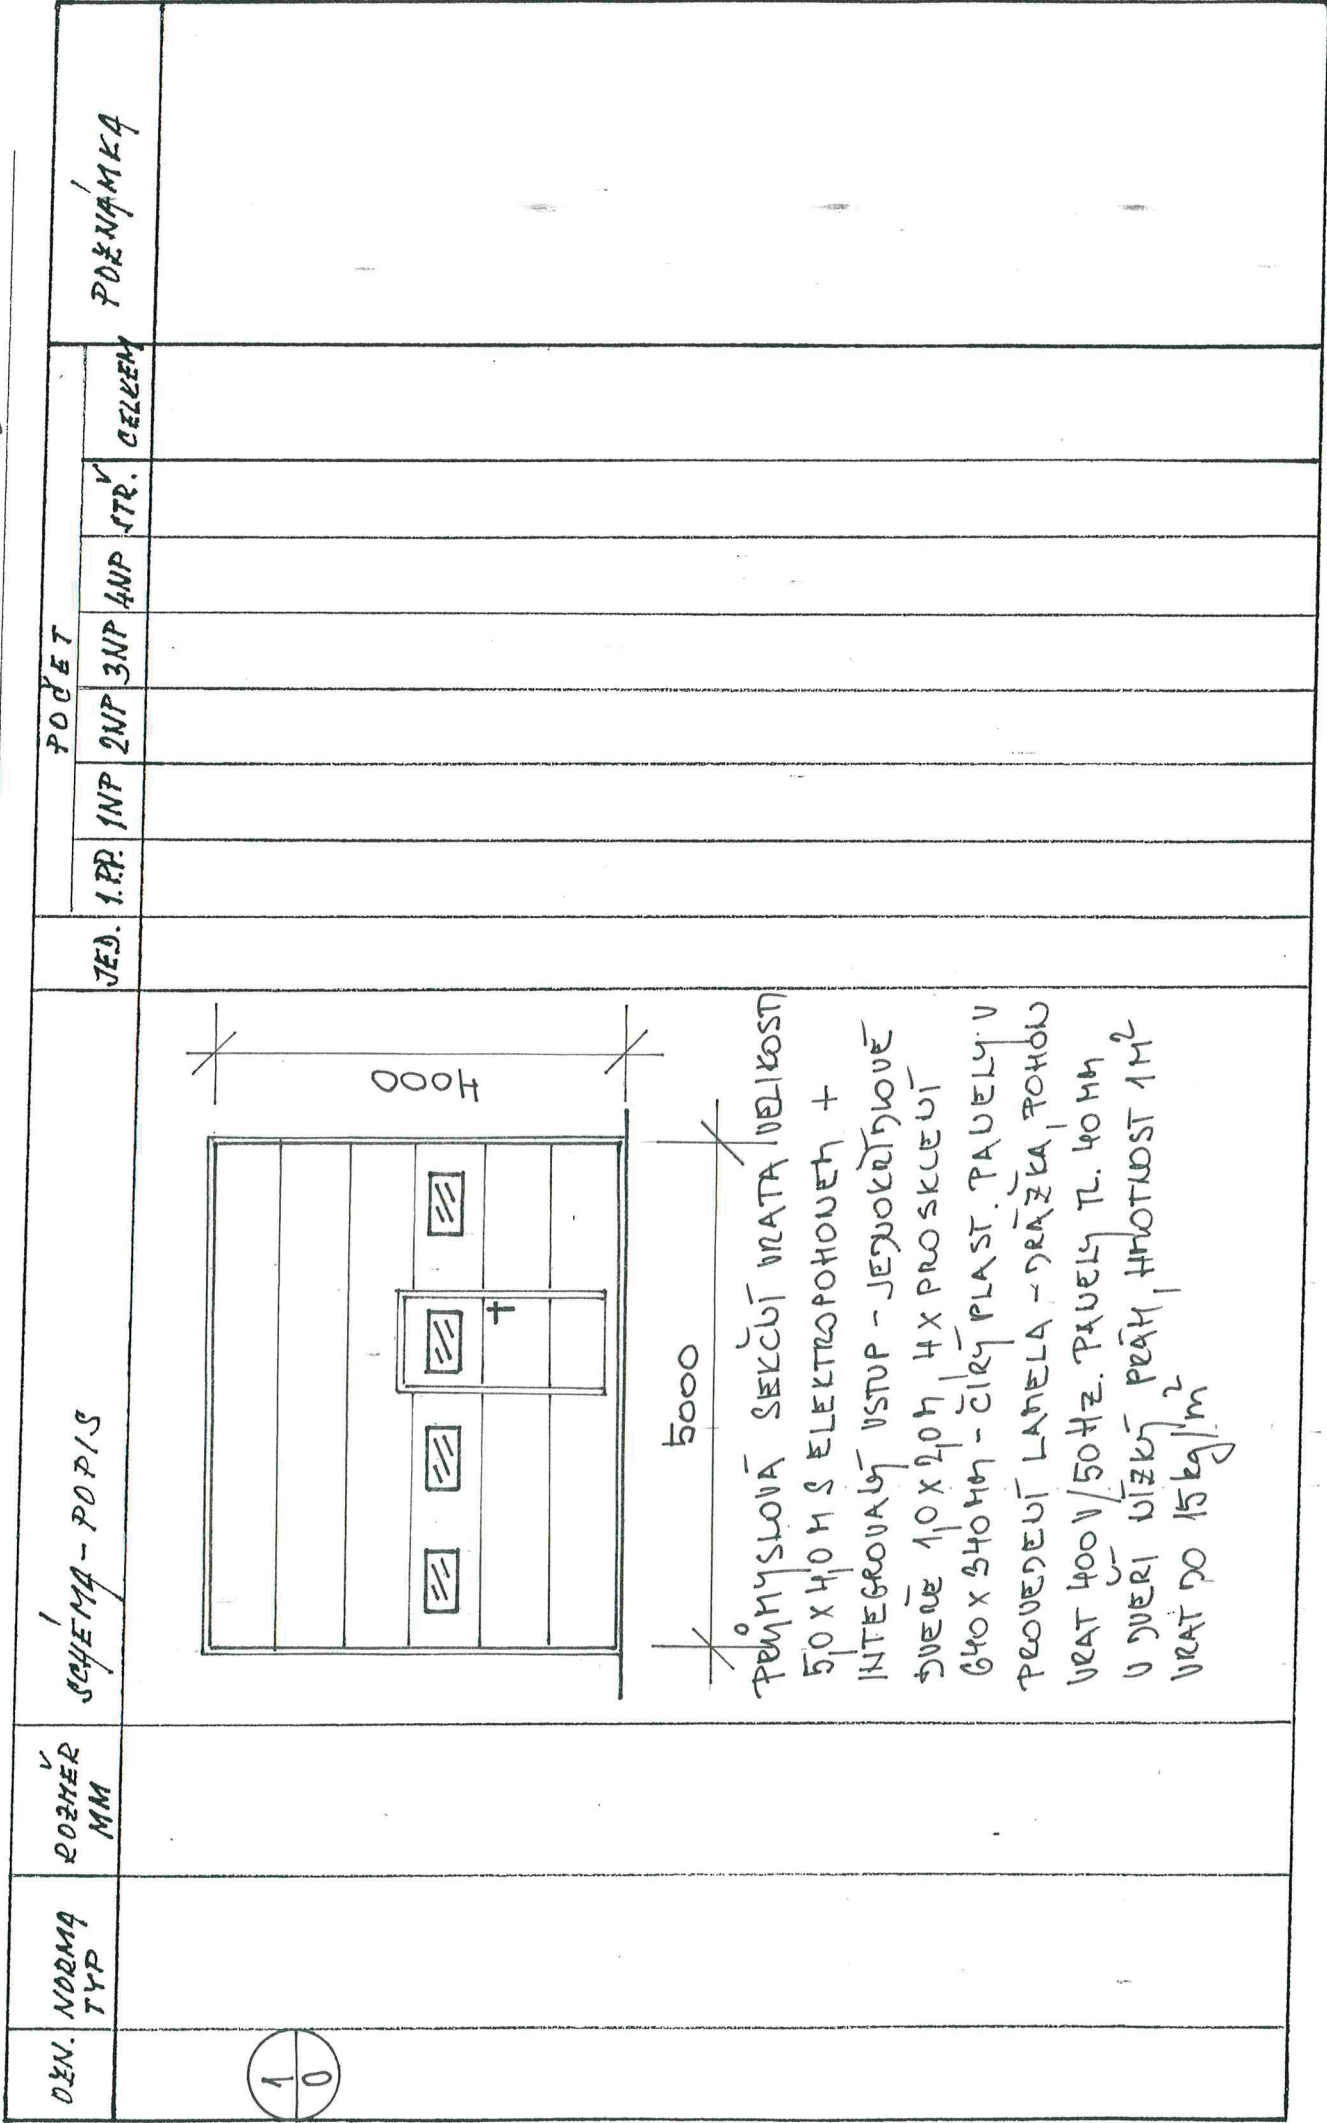 OZN.
NORMA
TYP
ROZMĚR
MM
SCHÉMA - POPIS
JED.
POČET
1.P.P.
1NP
2NP
3NP
4NP
STŘ.
CELKEM
POZNÁMKA
1
0
4000
5000
PRŮMYSLOVÁ SEKČNÍ VRATA VELIKOSTI
5,0 X 4,0 M S ELEKTROPOHONEM +
INTEGROVANÝ VSTUP - JEDNOKŘÍDLOVÉ
DVEŘE 1,0 X 2,0 M, 4X PROSKLENÍ
640 X 340 MM - ČIRÝ PLAST. PANELY V
PROVEDENÍ LAMELA - DRÁŽKA, POHON
VRAT 400 V/50 HZ. PANELY TL. 40 MM
U DVEŘÍ NÍZKÝ PRÁH, HMOTNOST 1 M²
VRAT DO 15 kg/m²